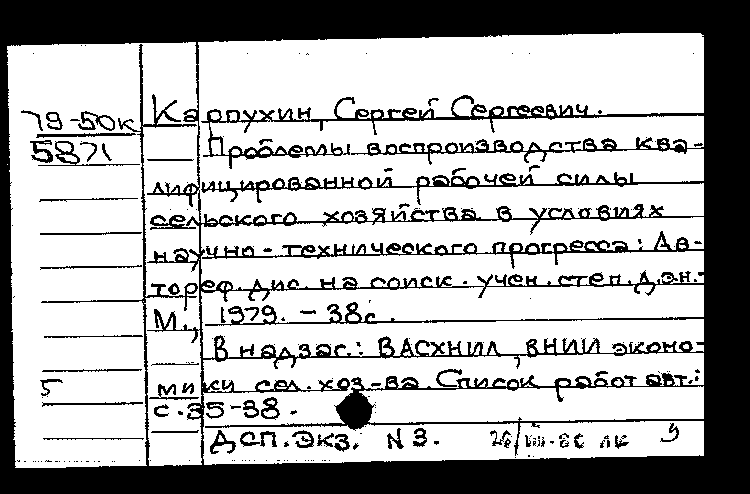 79-50к
5871
Карпухин, Сергей Сергеевич.
Проблемы воспроизводства ква-
лифицированной рабочей силы
сельского хозяйства в условиях
научно-технического прогресса: Ав-
тореф. дис. на соиск. учен. степ. д.эн.-
М., 1979. - 38с.
В надзаг.: ВАСХНИЛ, ВНИИ эконо-
5 мики сел. хоз-ва. Список работ авт.:
с.35-38.
ДСП. Экз. N 3.